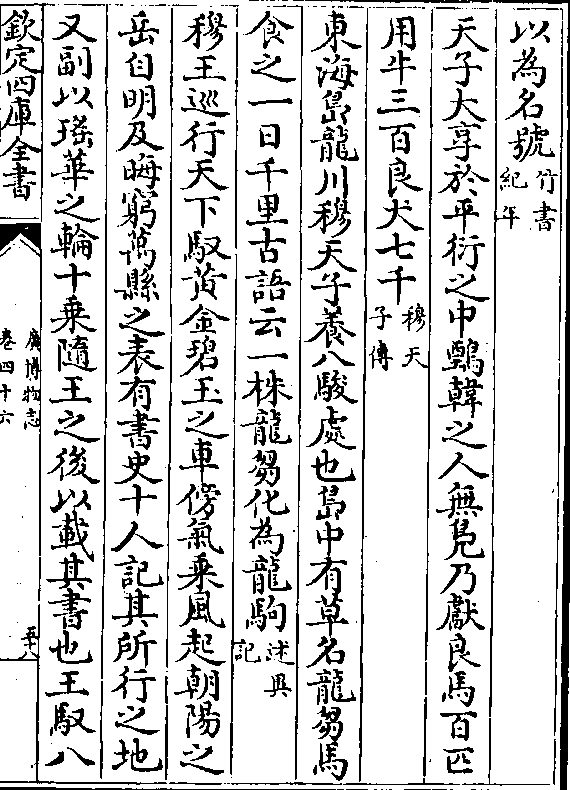 以為名號竹書紀年
天子大享於平衍之中鷶韓之人無鳧乃獻良馬百匹
用牛三百良犬七千穆天子傳
東海島龍川穆天子養八駿處也島中有草名龍芻馬
食之一日千里古語云一株龍芻化為龍駒述異記
穆王巡行天下馭黃金碧玉之車傍氣乘風起朝陽之
岳自明及晦窮萬縣之表有書史十人記其所行之地
又副以瑤華之輪十乘隨王之後以載其書也王馭八
欽定四庫全書
廣博物志
卷四十六
五十八